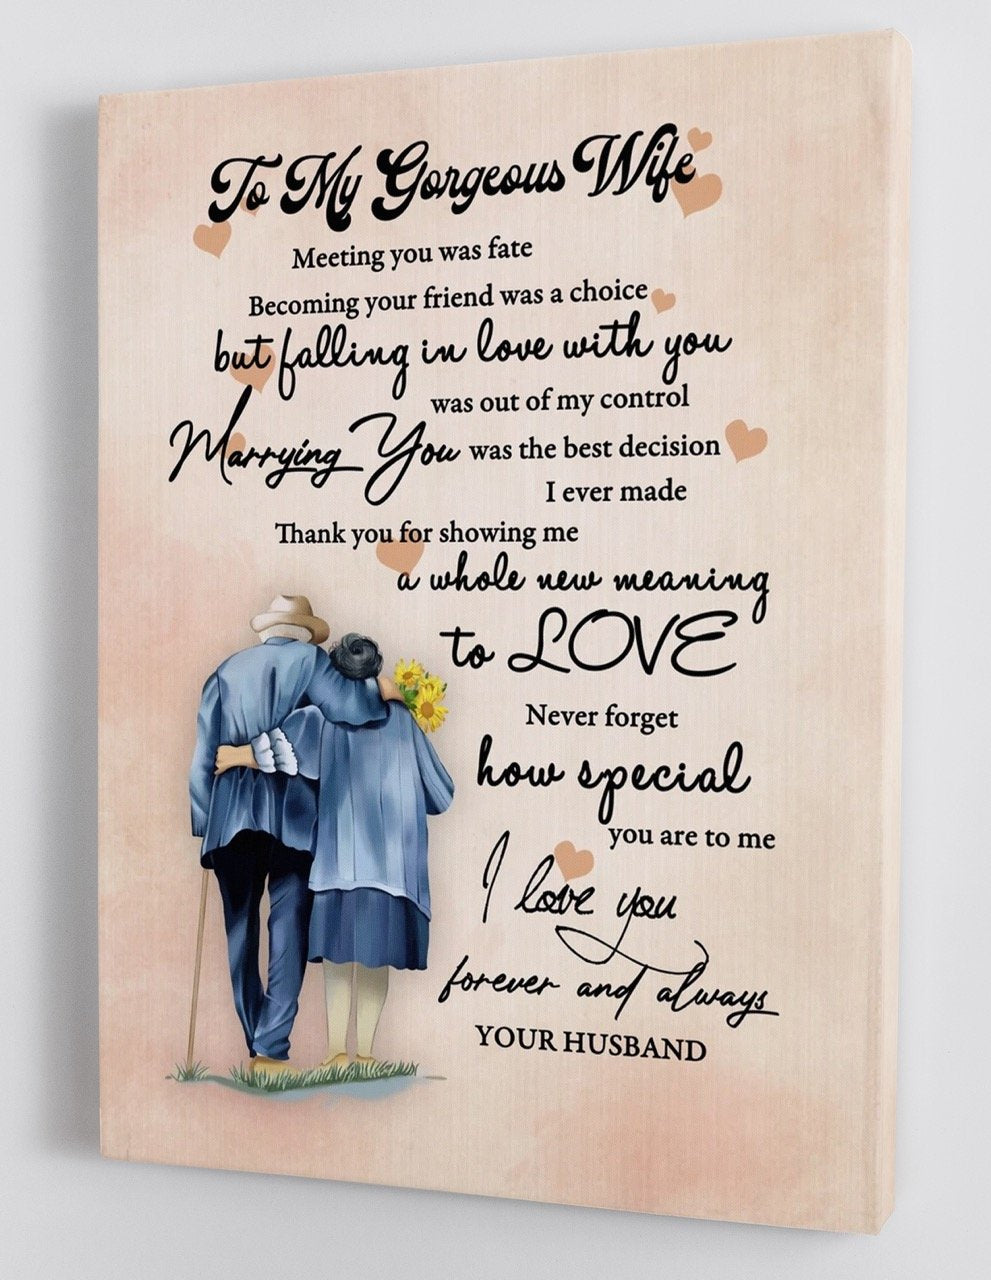 To My Gorgeous Wife
Meeting you was fate
Becoming your friend was a choice
but falling in love with you
was out of my control
Marrying You was the best decision
I ever made
Thank you for showing me
a whole new meaning
to LOVE
Never forget
how special
you are to me
I love you
forever and always
YOUR HUSBAND